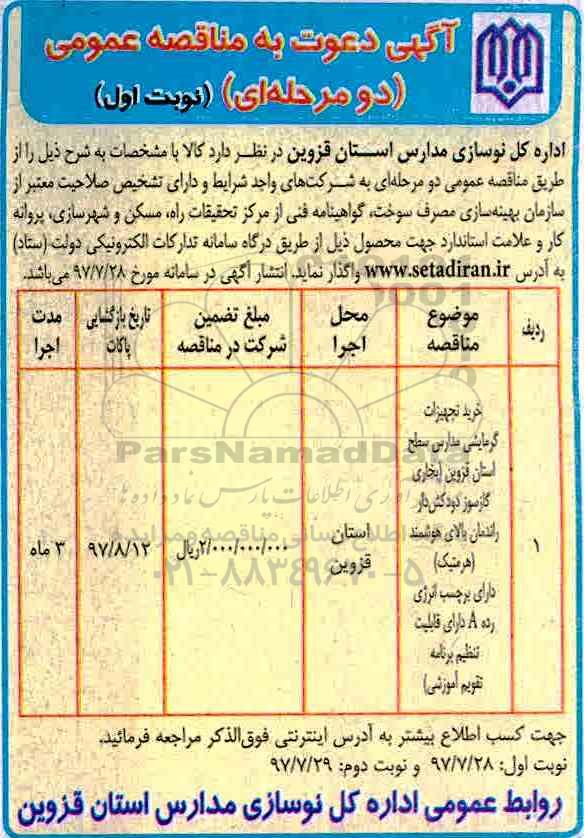 آگهی دعوت به مناقصه عمومی
(دو مرحله‌ای) (نوبت اول)
اداره کل نوسازی مدارس استان قزوین در نظر دارد کالا با مشخصات به شرح ذیل را از
طریق مناقصه عمومی دو مرحله‌ای به شرکت‌های واجد شرایط و دارای تشخیص صلاحیت معتبر از
سازمان بهینه‌سازی مصرف سوخت، گواهینامه فنی از مرکز تحقیقات راه، مسکن و شهرسازی، پروانه
کار و علامت استاندارد جهت محصول ذیل از طریق درگاه سامانه تدارکات الکترونیکی دولت (ستاد)
به آدرس www.setadiran.ir واگذار نماید. انتشار آگهی در سامانه مورخ ۹۷/۷/۲۸ می‌باشد.
ردیف
موضوع
مناقصه
محل
اجرا
مبلغ تضمین
شرکت در مناقصه
تاریخ بازگشایی
پاکات
مدت
اجرا
۱
خرید تجهیزات
گرمایشی مدارس سطح
استان قزوین (بخاری
گازسوز دودکش‌دار
راندمان بالای هوشمند
(هرمتیک)
دارای برچسب انرژی
رده A دارای قابلیت
تنظیم برنامه
تقویم آموزشی)
استان
قزوین
۲/۰۰۰/۰۰۰/۰۰۰ریال
۹۷/۸/۱۲
۳ ماه
ParsNamadData
۰۲۱-۸۸۳۴۹۶۷۰-۵
جهت کسب اطلاع بیشتر به آدرس اینترنتی فوق‌الذکر مراجعه فرمائید.
نوبت اول: ۹۷/۷/۲۸ و نوبت دوم: ۹۷/۷/۲۹
روابط عمومی اداره کل نوسازی مدارس استان قزوین